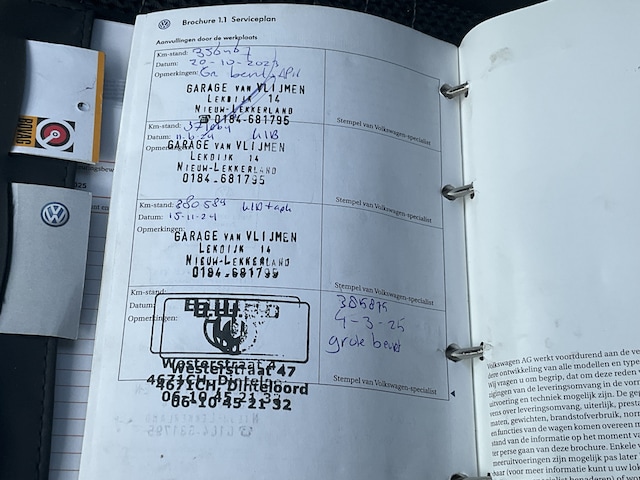 Brochure 1.1 Serviceplan
Aanvullingen door de werkplaats
Km-stand: 356467
Datum: 20-10-2023
Opmerkingen: Gr beurt + APK
GARAGE VAN VLIJMEN
LEKDIJK 14
NIEUW-LEKKERLAND
☎ 0184-681795
Stempel van Volkswagen-specialist
Km-stand:
Datum: 11-6-24
Opmerkingen:
GARAGE VAN VLIJMEN
LEKDIJK 14
NIEUW-LEKKERLAND
0184-681795
Stempel van Volkswagen-specialist
Km-stand: 380589
Datum: 15-11-24
Opmerkingen:
GARAGE VAN VLIJMEN
LEKDIJK 14
NIEUW-LEKKERLAND
0184-681795
Stempel van Volkswagen-specialist
Km-stand:
Datum:
Opmerkingen:
385875
4-3-25
grote beurt
Westerstraat 47
4671CH Dinteloord
06 10 45 21 32
Stempel van Volkswagen-specialist
Volkswagen AG werkt voortdurend aan de
dere ontwikkeling van alle modellen en type
Wij vragen u om begrip, dat om deze reden
gingen van de leveringsomvang in de vor
uitvoering en techniek mogelijk zijn. De geg
vens over leveringsomvang, uiterlijk, presta
maten, gewichten, brandstofverbruik, norm
en functies van de wagen komen overeen m
stand van de informatie op het moment va
ter perse gaan van deze brochure. Enkele
meeruitvoeringen zijn mogelijk pas later
baar (voor meer informatie kunt u uw lok